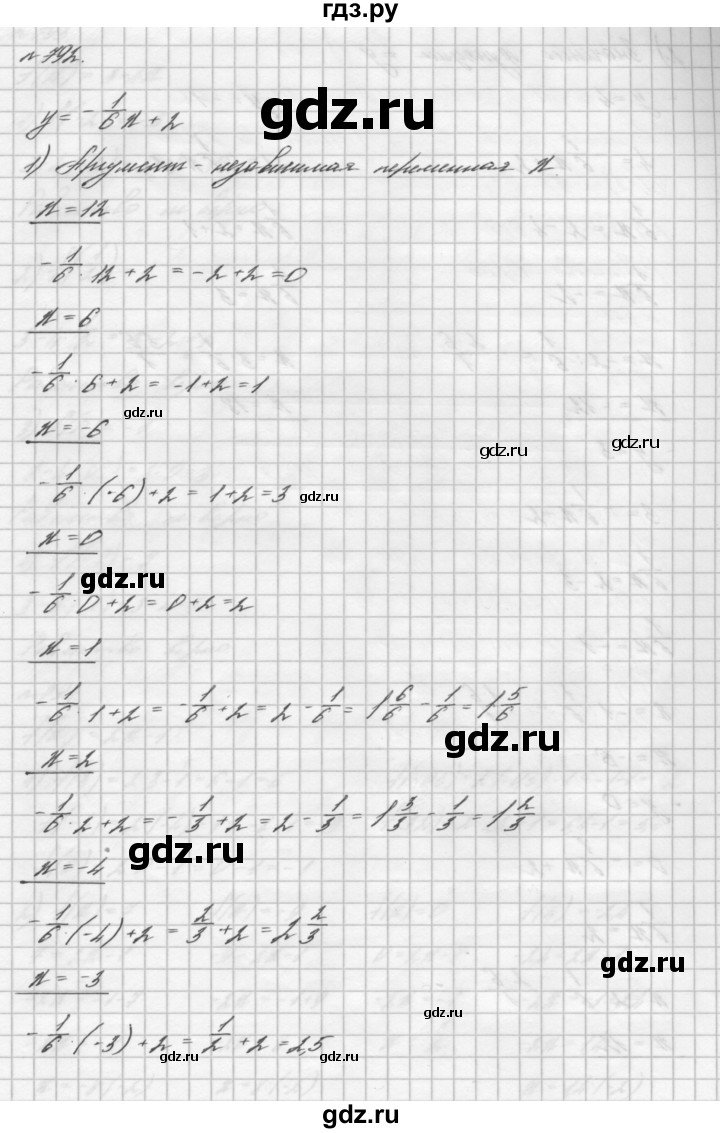 гдз.ру
№792.
y = -1/6 x + 2
gdz.ru
1) Аргумент - независимая переменная x.
x = 12
-1/6 · 12 + 2 = -2 + 2 = 0
x = 6
-1/6 · 6 + 2 = -1 + 2 = 1
gdz.ru
x = -6
gdz.ru
gdz.ru
-1/6 · (-6) + 2 = 1 + 2 = 3
gdz.ru
x = 0
gdz.ru
-1/6 · 0 + 2 = 0 + 2 = 2
x = 1
-1/6 · 1 + 2 = -1/6 + 2 = 2 - 1/6 = 1 6/6 - 1/6 = 1 5/6
gdz.ru
x = 2
-1/6 · 2 + 2 = -1/3 + 2 = 2 - 1/3 = 1 3/3 - 1/3 = 1 2/3
gdz.ru
x = -4
-1/6 · (-4) + 2 = 2/3 + 2 = 2 2/3
gdz.ru
x = -3
gdz.ru
-1/6 · (-3) + 2 = 1/2 + 2 = 2,5
gdz.ru
gdz.ru
gdz.ru